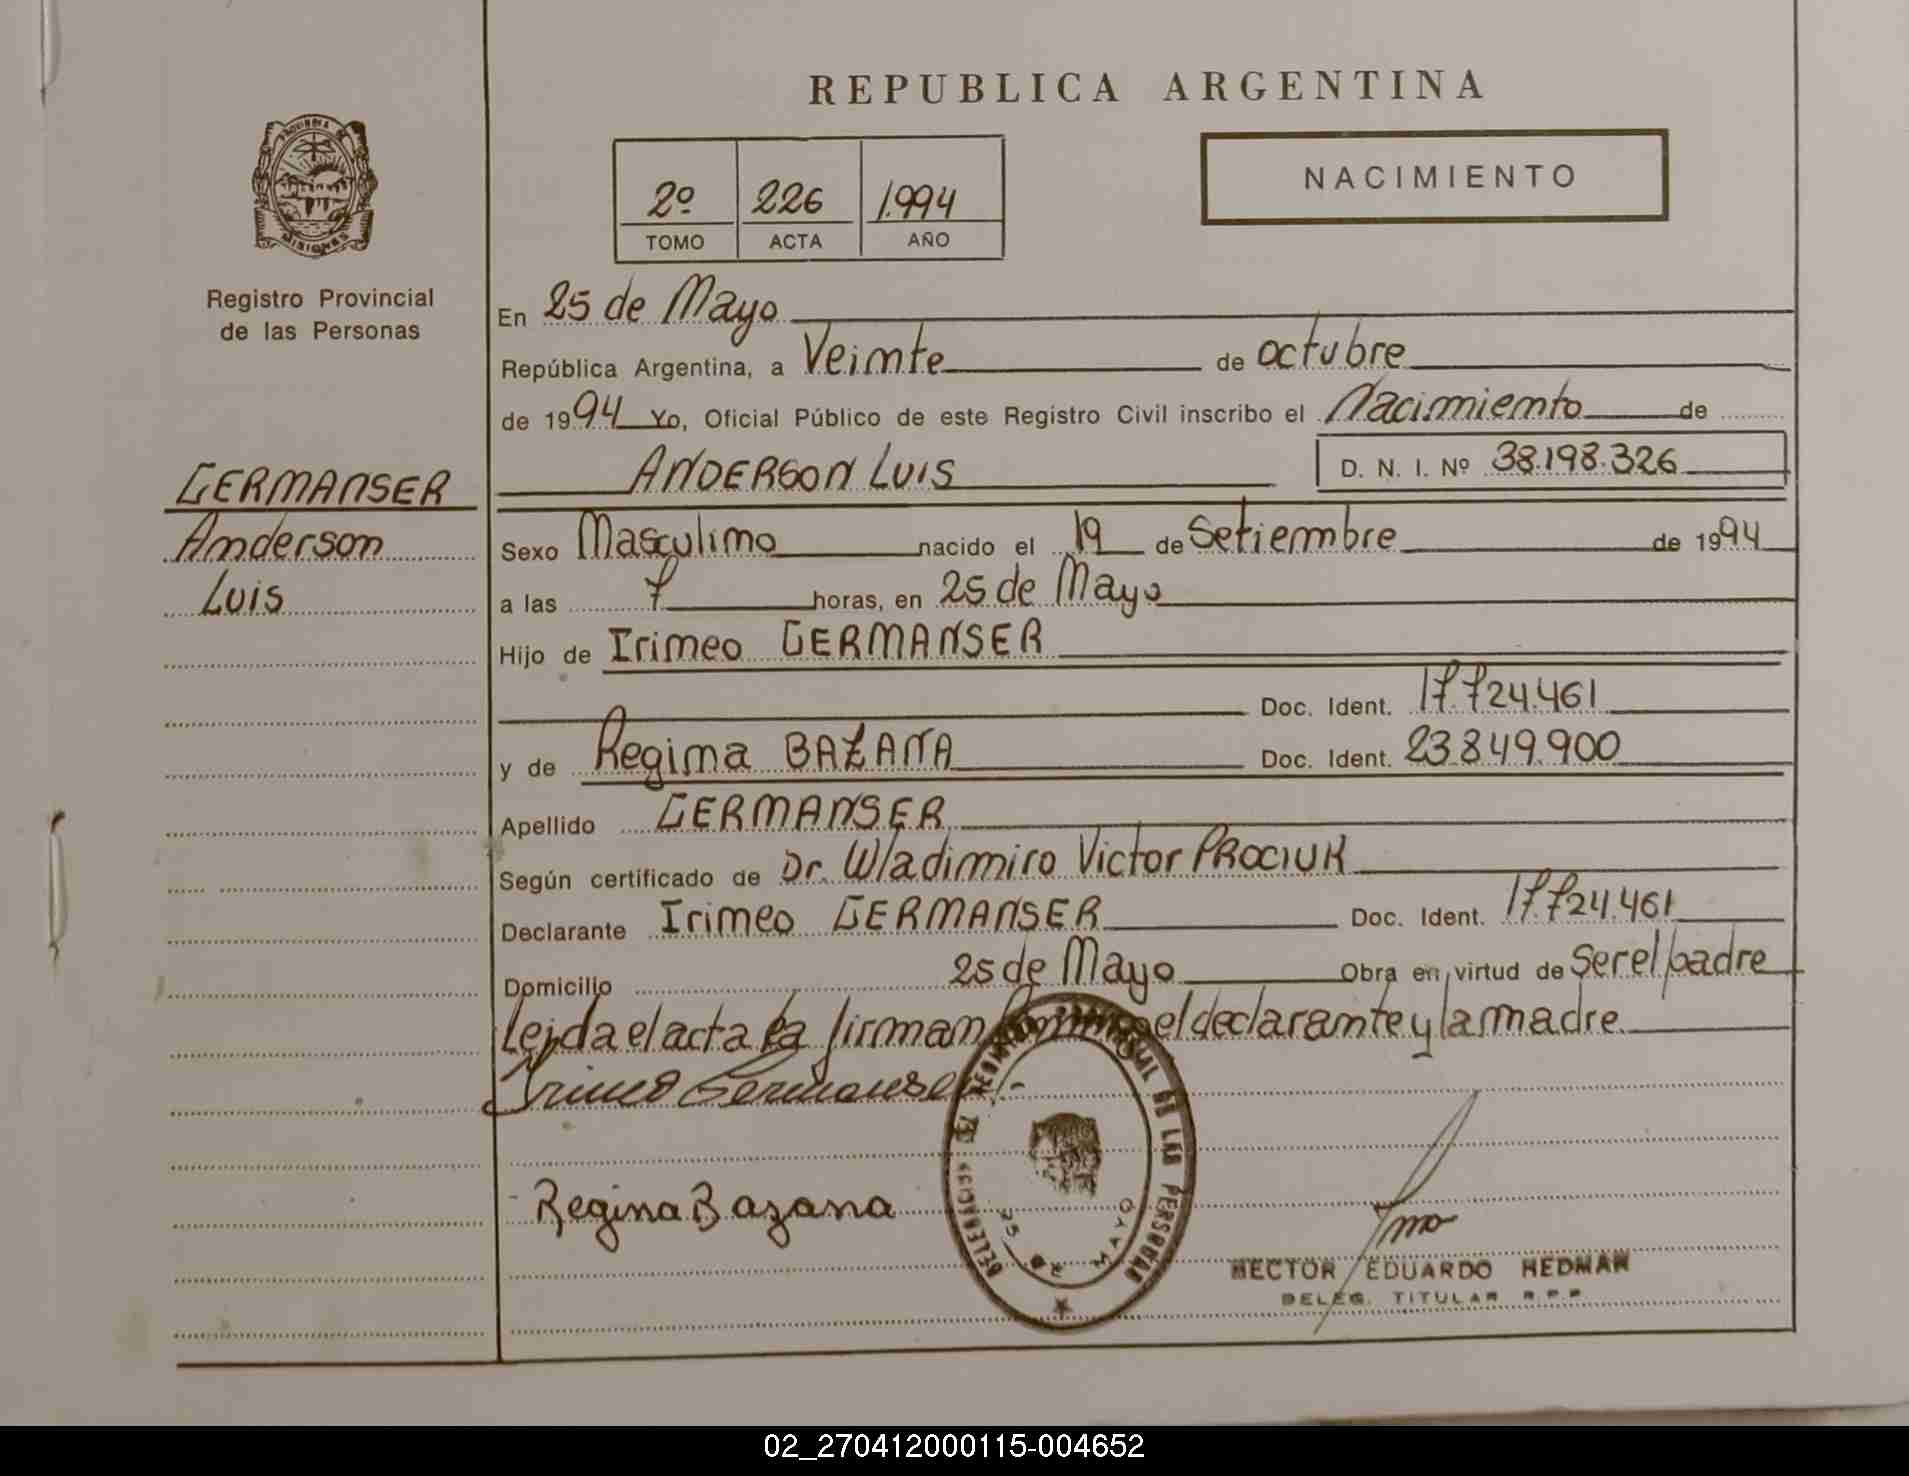 REPUBLICA ARGENTINA
PROVINCIA DE
MISIONES
Registro Provincial
de las Personas
2º 226 1.994
TOMO ACTA AÑO
NACIMIENTO
En 25 de Mayo
República Argentina, a Veinte de octubre
de 1994 Yo, Oficial Público de este Registro Civil inscribo el Nacimiento de
GERMANSER
Anderson
Luis
ANDERSON LUIS D. N. I. Nº 38.198.326
Sexo Masculino nacido el 19 de Setiembre de 1994
a las 7 horas, en 25 de Mayo
Hijo de Irineo GERMANSER
Doc. Ident. 17.724.461
y de Regina BAZANA Doc. Ident. 23.849.900
Apellido GERMANSER
Según certificado de Dr. Wladimiro Victor PROCIUK
Declarante Irineo GERMANSER Doc. Ident. 17.724.461
Domicilio 25 de Mayo Obra en virtud de ser el padre
Leida el acta la firman conmigo el declarante y la madre.
Irineo Germanser
Regina Bazana
REGISTRO PROVINCIAL DE LAS PERSONAS
DELEGACION
25 DE MAYO
HECTOR EDUARDO HEDMAN
DELEG. TITULAR R.P.P.
02_270412000115-004652